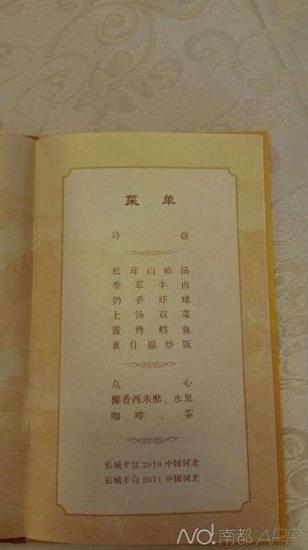 菜单
冷盘
松茸山珍汤
香草牛肉
奶香虾球
上汤双菜
酱烤鳕鱼
素什锦炒饭
点心
椰香西米酪、水果
咖啡、茶
长城干红2010 中国河北
长城干白2011 中国河北
南都APP